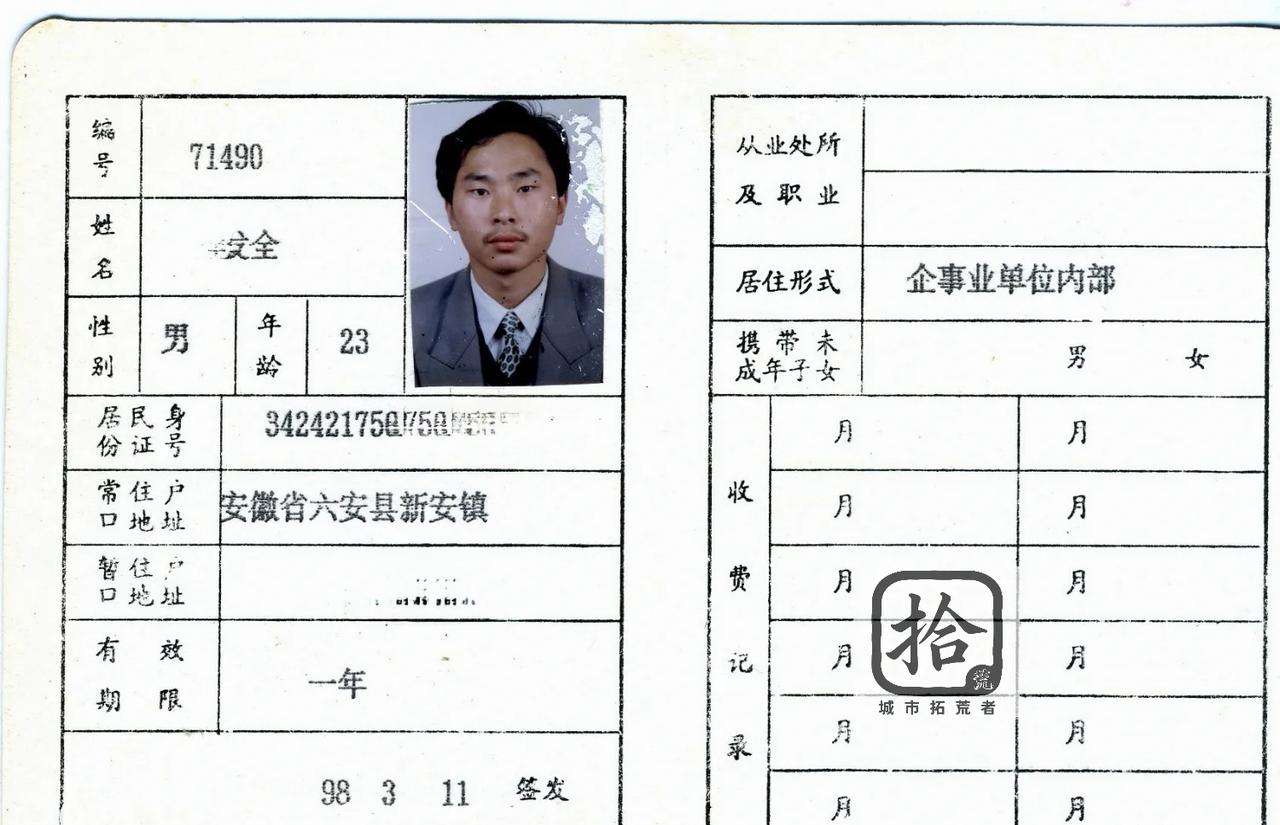 编号
71490
姓名
全
性别
男
年龄
23
居民身份证号
342421750
常住户口地址
安徽省六安县新安镇
暂住户口地址
有效期限
一年
98 3 11 签发
从业处所及职业
居住形式
企事业单位内部
携带未成年子女
男 女
收费记录
月 月
月 月
月 月
月 月
月 月
月 月
拾荒
城市拓荒者